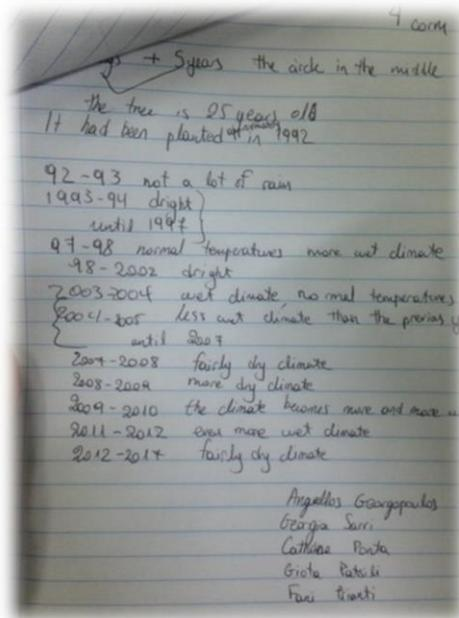 4 
+ 5years the circle in the middle
the tree is 25 years old
It had been planted in 1992
92-93 not a lot of rain
1993-94 dright
until 1997
97-98 normal temperatures more wet climate
98-2002 dright
2003-2004 wet climate, normal temperatures
2004-2005 less wet climate than the previus
until 2007
2007-2008 fairly dry climate
2008-2009 more dry climate
2009-2010 the climate becomes more and more
2011-2012 even more wet climate
2012-2017 fairly dry climate
Angellos Georgopoulos
Georgia Sarri
Ponta
Giota
Fani